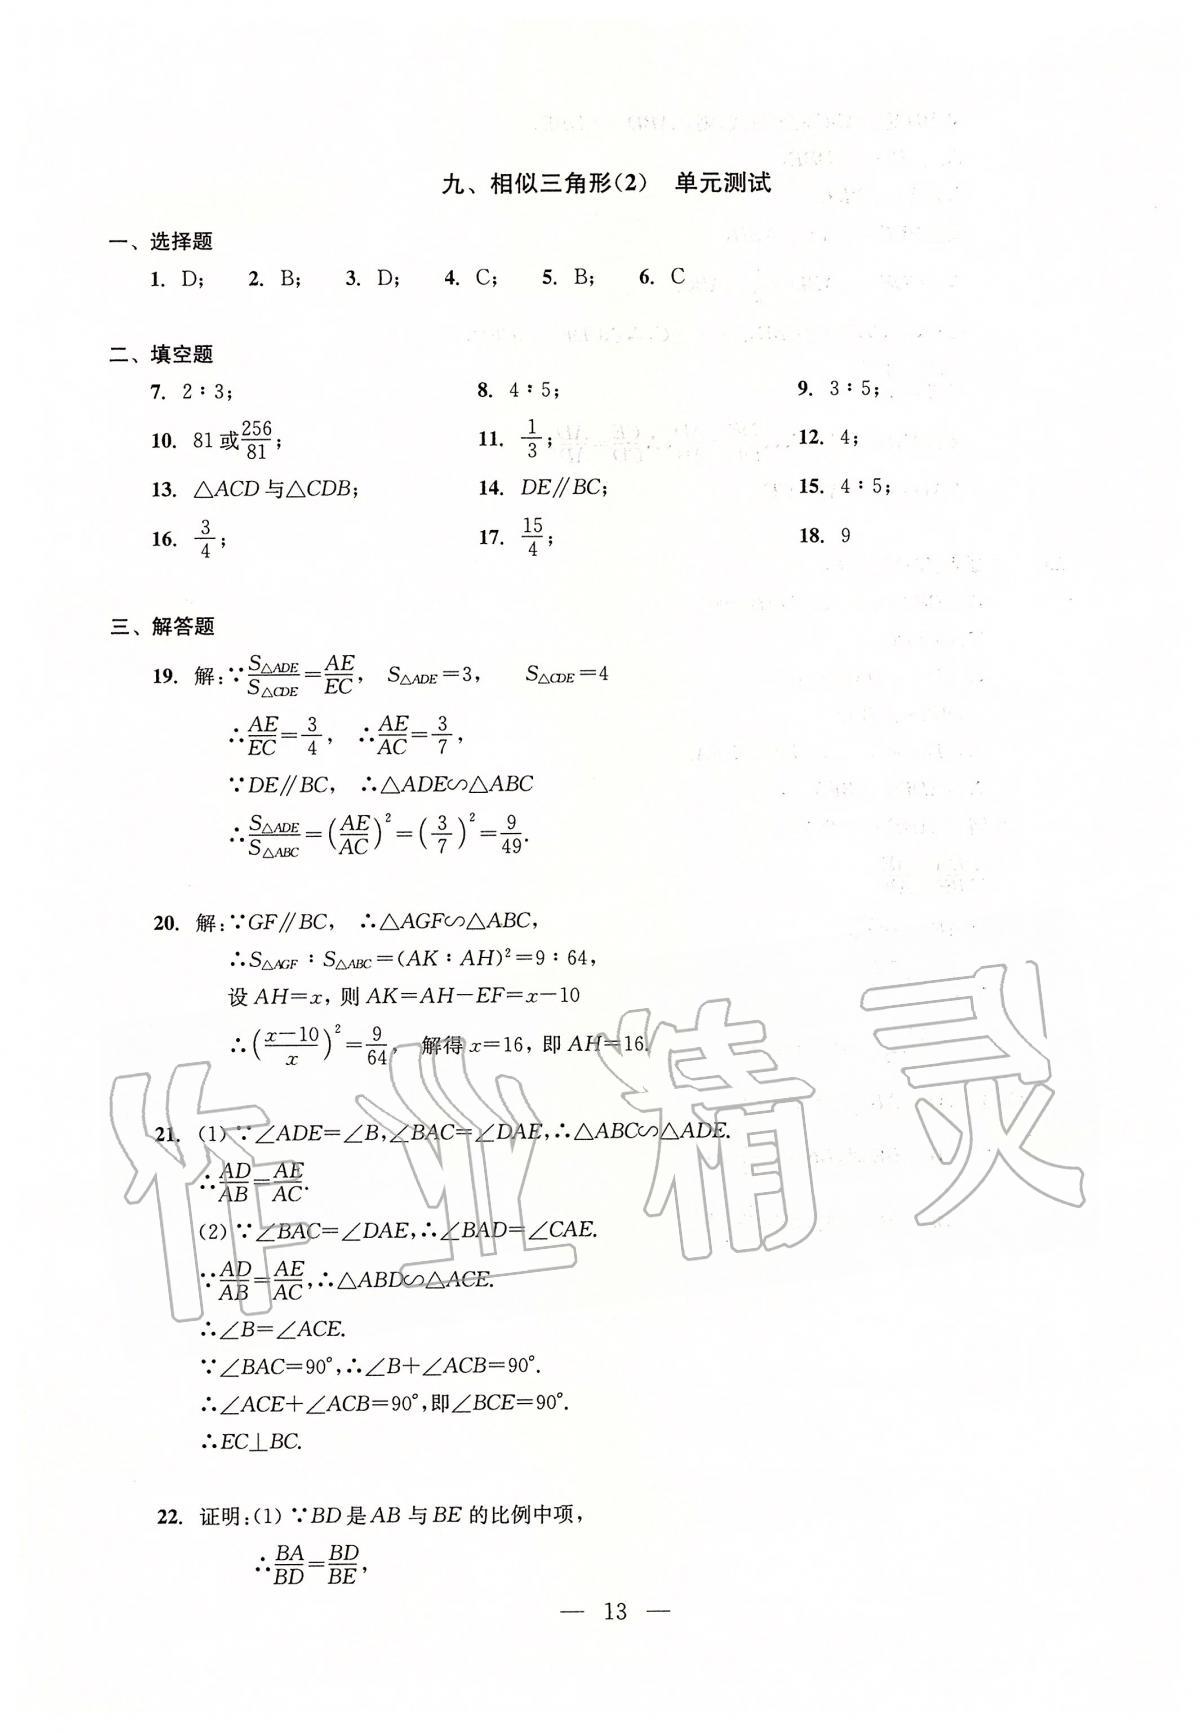 九、相似三角形(2) 单元测试
一、选择题
1. D; 2. B; 3. D; 4. C; 5. B; 6. C
二、填空题
7. 2∶3; 8. 4∶5; 9. 3∶5;
10. 81或256/81; 11. 1/3; 12. 4;
13. △ACD与△CDB; 14. DE∥BC; 15. 4∶5;
16. 3/4; 17. 15/4; 18. 9
三、解答题
19. 解:∵S△ADE/S△CDE=AE/EC, S△ADE=3, S△CDE=4
∴AE/EC=3/4, ∴AE/AC=3/7,
∵DE∥BC, ∴△ADE∽△ABC
∴S△ADE/S△ABC=(AE/AC)²=(3/7)²=9/49.
20. 解:∵GF∥BC, ∴△AGF∽△ABC,
∴S△AGF∶S△ABC=(AK∶AH)²=9∶64,
设AH=x,则AK=AH−EF=x−10
∴((x−10)/x)²=9/64, 解得x=16,即AH=16.
21. (1)∵∠ADE=∠B,∠BAC=∠DAE,∴△ABC∽△ADE.
∴AD/AB=AE/AC.
(2)∵∠BAC=∠DAE,∴∠BAD=∠CAE.
∵AD/AB=AE/AC,∴△ABD∽△ACE.
∴∠B=∠ACE.
∵∠BAC=90°,∴∠B+∠ACB=90°.
∴∠ACE+∠ACB=90°,即∠BCE=90°.
∴EC⊥BC.
22. 证明:(1)∵BD是AB与BE的比例中项,
∴BA/BD=BD/BE,
— 13 —
作业精灵